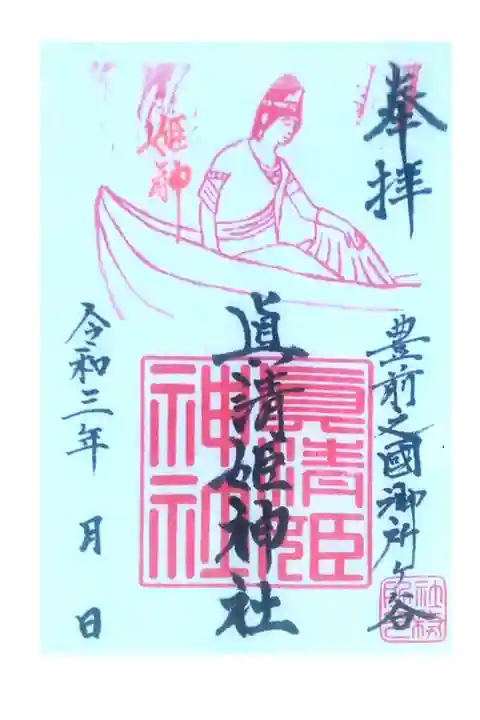 奉拝
豊前之國御所ヶ谷
眞清姫神社
令和三年 月 日
姫神
眞清姫
神社